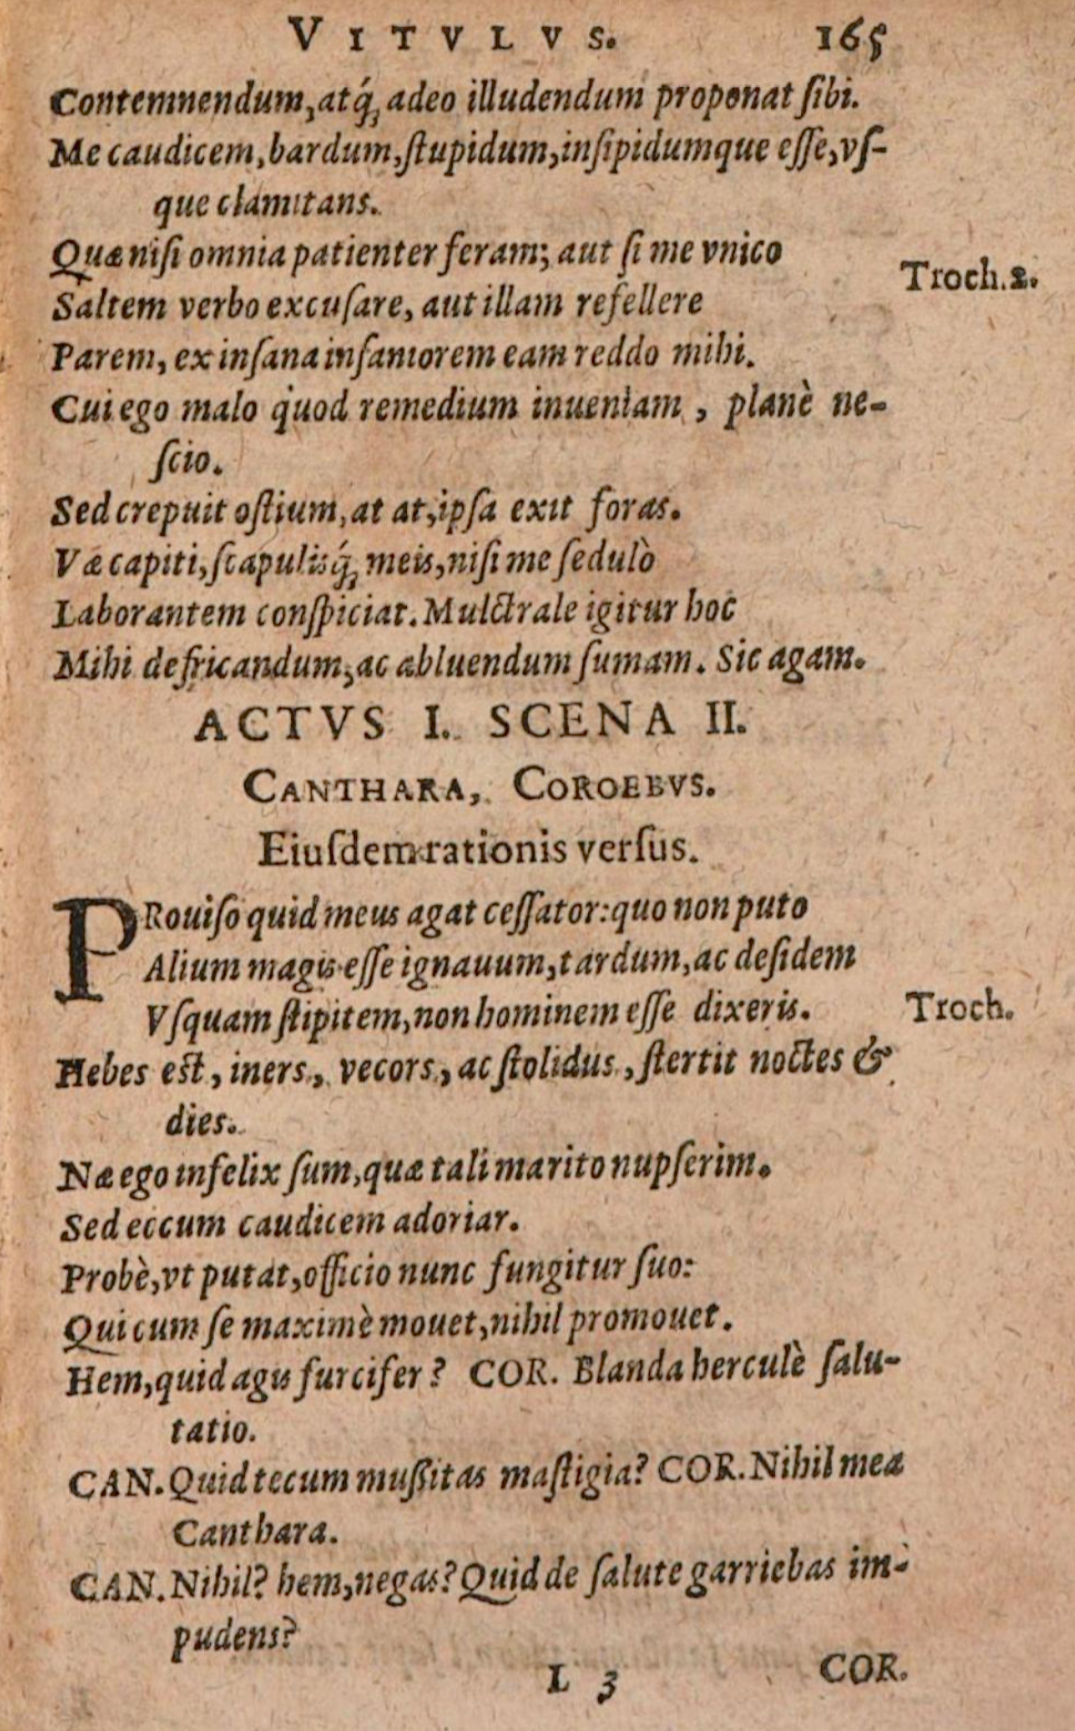 VITVLVS. 165
Contemnendum, atq́; adeo illudendum proponat ſibi.
Me caudicem, bardum, ſtupidum, inſipidumque eſſe, vſ-
que clamitans.
Quæ niſi omnia patienter feram; aut ſi me vnico
Troch. 2.
Saltem verbo excuſare, aut illam refellere
Parem, ex inſana inſaniorem eam reddo mihi.
Cui ego malo quod remedium inueniam, planè ne-
ſcio.
Sed crepuit oſtium, at at, ipſa exit foras.
Væ capiti, ſcapulisq́; meis, niſi me ſedulò
Laborantem conſpiciat. Mulctrale igitur hoc
Mihi defricandum, ac abluendum ſumam. Sic agam.
ACTVS I. SCENA II.
CANTHARA, COROEBVS.
Eiuſdem rationis verſus.
PRouiſo quid meus agat ceſſator: quo non puto
Alium magis eſſe ignauum, tardum, ac deſidem
Vſquam ſtipitem, non hominem eſſe dixeris.
Troch.
Hebes eſt, iners, vecors, ac ſtolidus, ſtertit noctes &
dies.
Næ ego infelix ſum, quæ tali marito nupſerim.
Sed eccum caudicem adoriar.
Probè, vt putat, officio nunc fungitur ſuo:
Qui cum ſe maximè mouet, nihil promouet.
Hem, quid agis furcifer? COR. Blanda herculè ſalu-
tatio.
CAN. Quid tecum muſſitas maſtigia? COR. Nihil mea
Canthara.
CAN. Nihil? hem, negas? Quid de ſalute garriebas im-
pudens?
L 3 COR.